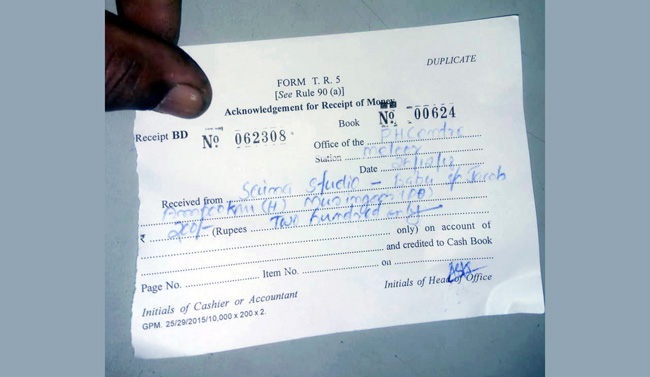 DUPLICATE
FORM T. R. 5
[See Rule 90 (a)]
Acknowledgement for Receipt of Money
Receipt BD № 062308 Book № 00624
Office of the PHCentre
Station
Date
Received from Seima Studio - Babu S/o Jacob
(H)
₹ 200/- (Rupees Two hundred only only) on account of
and credited to Cash Book
Page No. Item No. on
Initials of Cashier or Accountant Initials of Head of Office
GPM. 25/29/2015/10,000 x 200 x 2.